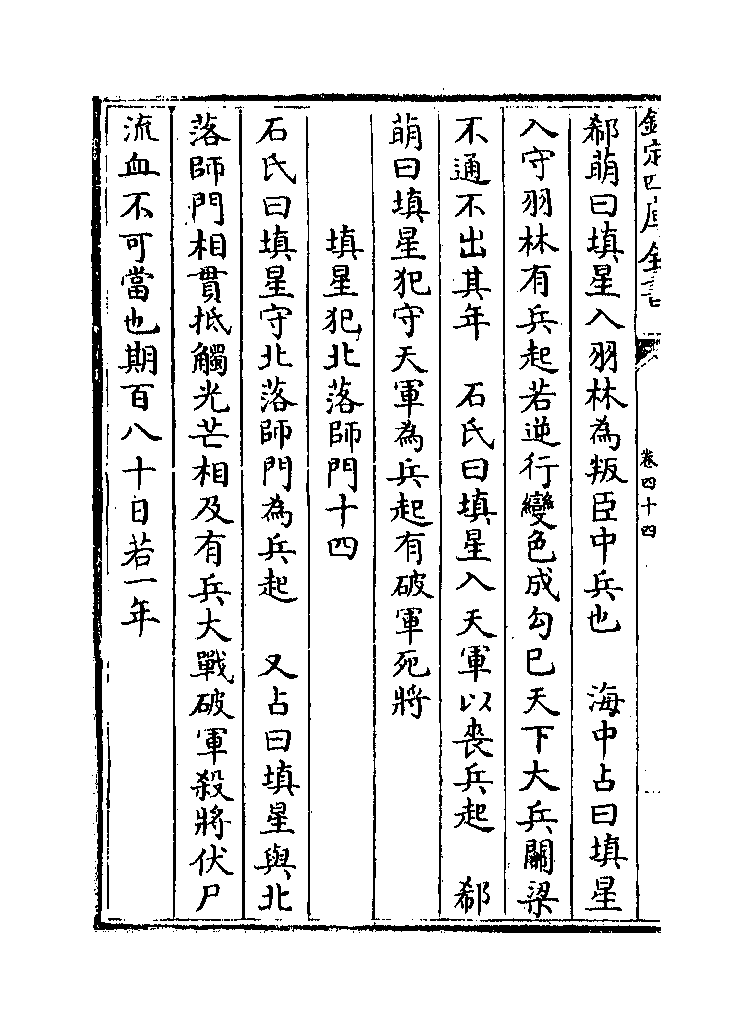 欽定四庫全書
卷四十四
郗萌曰填星入羽林為叛臣中兵也　海中占曰填星
入守羽林有兵起若逆行變色成勾巳天下大兵關梁
不通不出其年　石氏曰填星入天軍以喪兵起　郗
萌曰填星犯守天軍為兵起有破軍死將
填星犯北落師門十四
石氏曰填星守北落師門為兵起　又占曰填星與北
落師門相貫抵觸光芒相及有兵大戰破軍殺將伏尸
流血不可當也期百八十日若一年